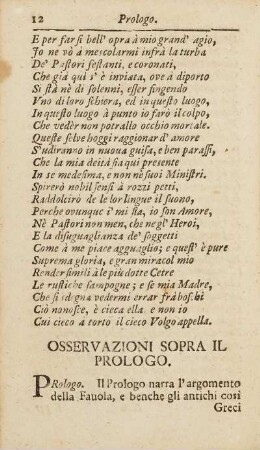 12 Prologo.
E per far sì bell' opra à mio grand' agio,
Jo ne vò à mescolarmi infrà la turba
De' Pastori festanti, e coronati,
Che già quì s' è inviata, ove a diporto
Si stà nè dì solenni, esser fingendo
Vno di loro schiera, ed in questo luogo,
In questo luogo à punto io farò il colpo,
Che vedèr non potrallo occhio mortale.
Queste selve hoggi raggionar d' amore
S' udiranno in nuova guisa, e ben parassi,
Che la mia deità sia quì presente
In se medesima, e non nè suoi Ministri.
Spirerò nobil sensi à rozzi petti,
Raddolcirò de le lor lingue il suono,
Perche ovunque i' mi sia, io son Amore,
Nè Pastori non men, che negl' Heroi,
E la disuguaglianza de' soggetti
Come à me piace agguaglio; e quest' è pure
Suprema gloria, e gran miracol mio
Render simili à le più dotte Cetre
Le rustiche sampogne; e se mia Madre,
Che si sdegna vedermi errar frà boschi
Ciò nonosce, è cieca ella e non io
Cui cieco a torto il cieco Volgo appella.
OSSERVAZIONI SOPRA IL
PROLOGO.
PRologo. Il Prologo narra l'argomento
della Fauola, e benche gli antichi così
Greci